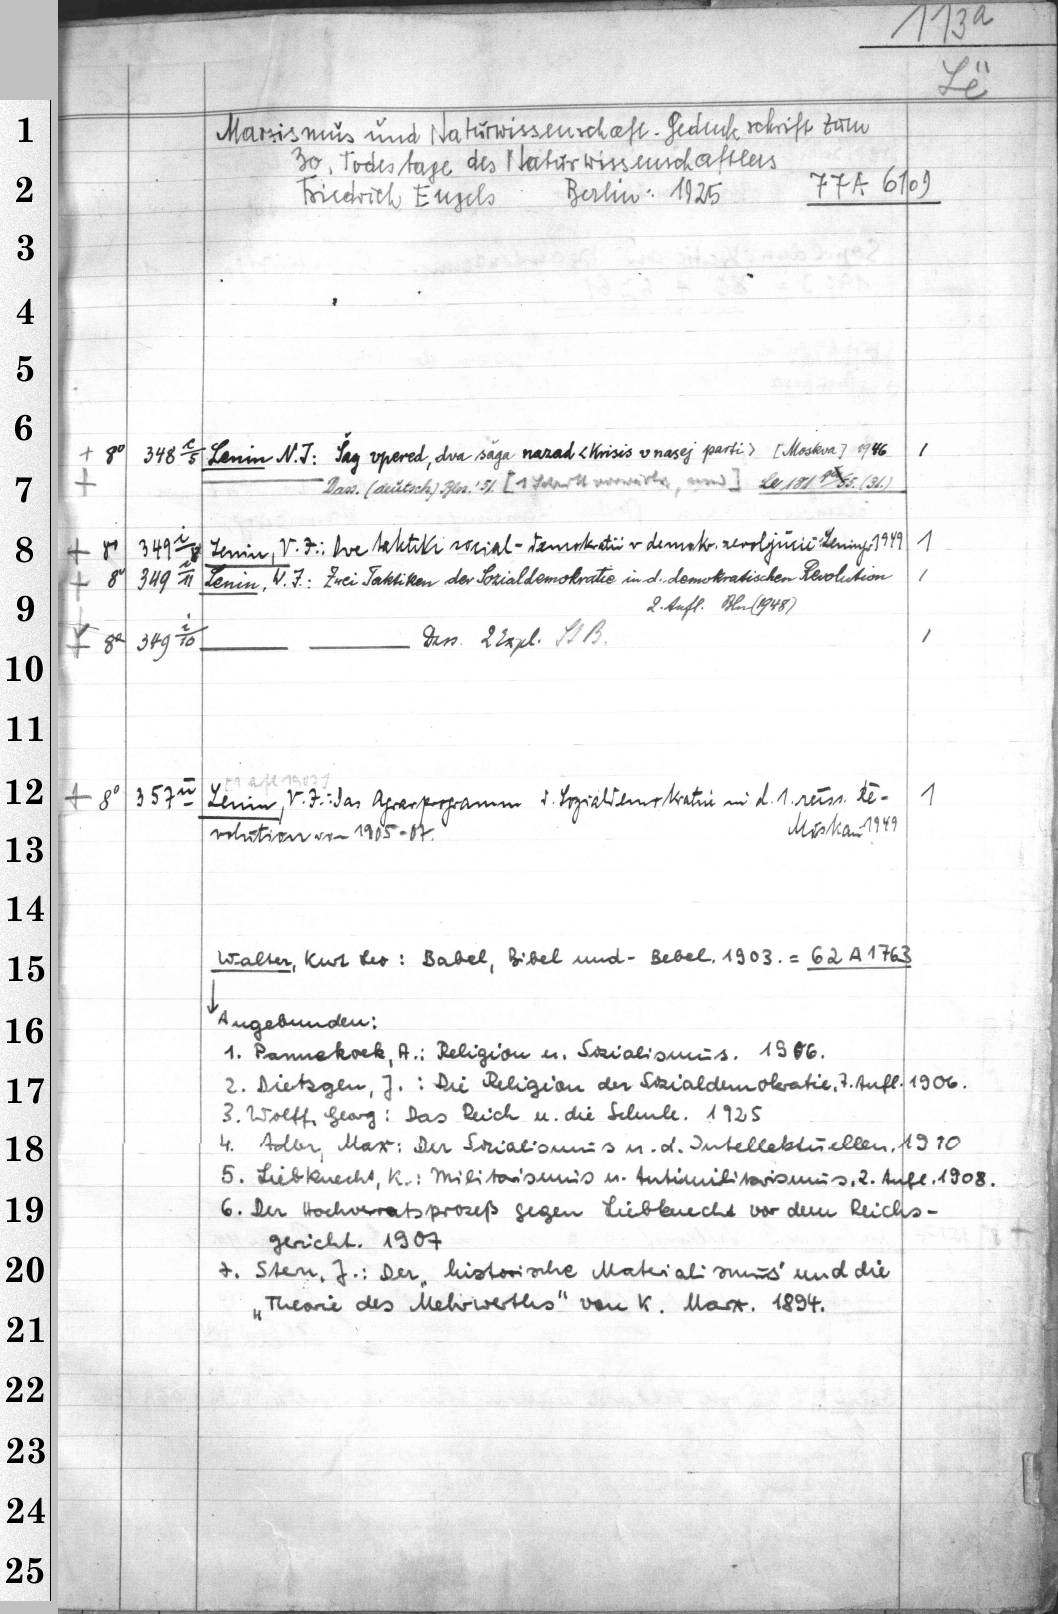 113a
Lë
1
Marxismus und Naturwissenschaft. Gedenkschrift zum
30. Todestage des Naturwissenschaftlers
2
Friedrich Engels Berlin: 1925 77A 6109
3
4
5
6
+ 8° 348 i/5 Lenin N. I: Šag vpered, dva šaga nazad <Krisis v nasej parti> [Moskva] 1946 1
7
+ Dass. (deutsch) Bln. '51. [1 Schritt vorwärts, ]
8
+ 8° 349 i/8 Lenin, V. I.: Dve taktiki social-demokratii v demokr. revoljucii Leningr 1949 1
+ 8° 349 i/11 Lenin, W. I.: Zwei Taktiken der Sozialdemokratie in d. demokratischen Revolution 1
9
2. Aufl. Bln (1948)
+ 8° 349 i/10 Dass. 2 Expl. 1
10
11
12
+ 8° 357 Lenin, V. I.: Das Agrarprogramm d. Sozialdemokratie in d. 1. russ. Re- 1
volution von 1905-07. Moskau 1949
13
14
15
Walter, Kurt Leo: Babel, Bibel und - Bebel. 1903. = 62 A 1763
16
Angebunden:
1. Pannekoek, A.: Religion u. Sozialismus. 1906.
17
2. Dietzgen, J.: Die Religion der Sozialdemokratie. 7. Aufl. 1906.
3. Wolff, Georg: Das Reich u. die Schule. 1925
18
4. Adler, Max: Der Sozialismus u. d. Intellektuellen. 1910
5. Liebknecht, K.: Militarismus u. Antimilitarismus. 2. Aufl. 1908.
19
6. Der Hochverratsprozeß gegen Liebknecht vor dem Reichs-
gericht. 1907
20
7. Stern, J.: Der „historische Materialismus" und die
„Theorie des Mehrwerths" von K. Marx. 1894.
21
22
23
24
25